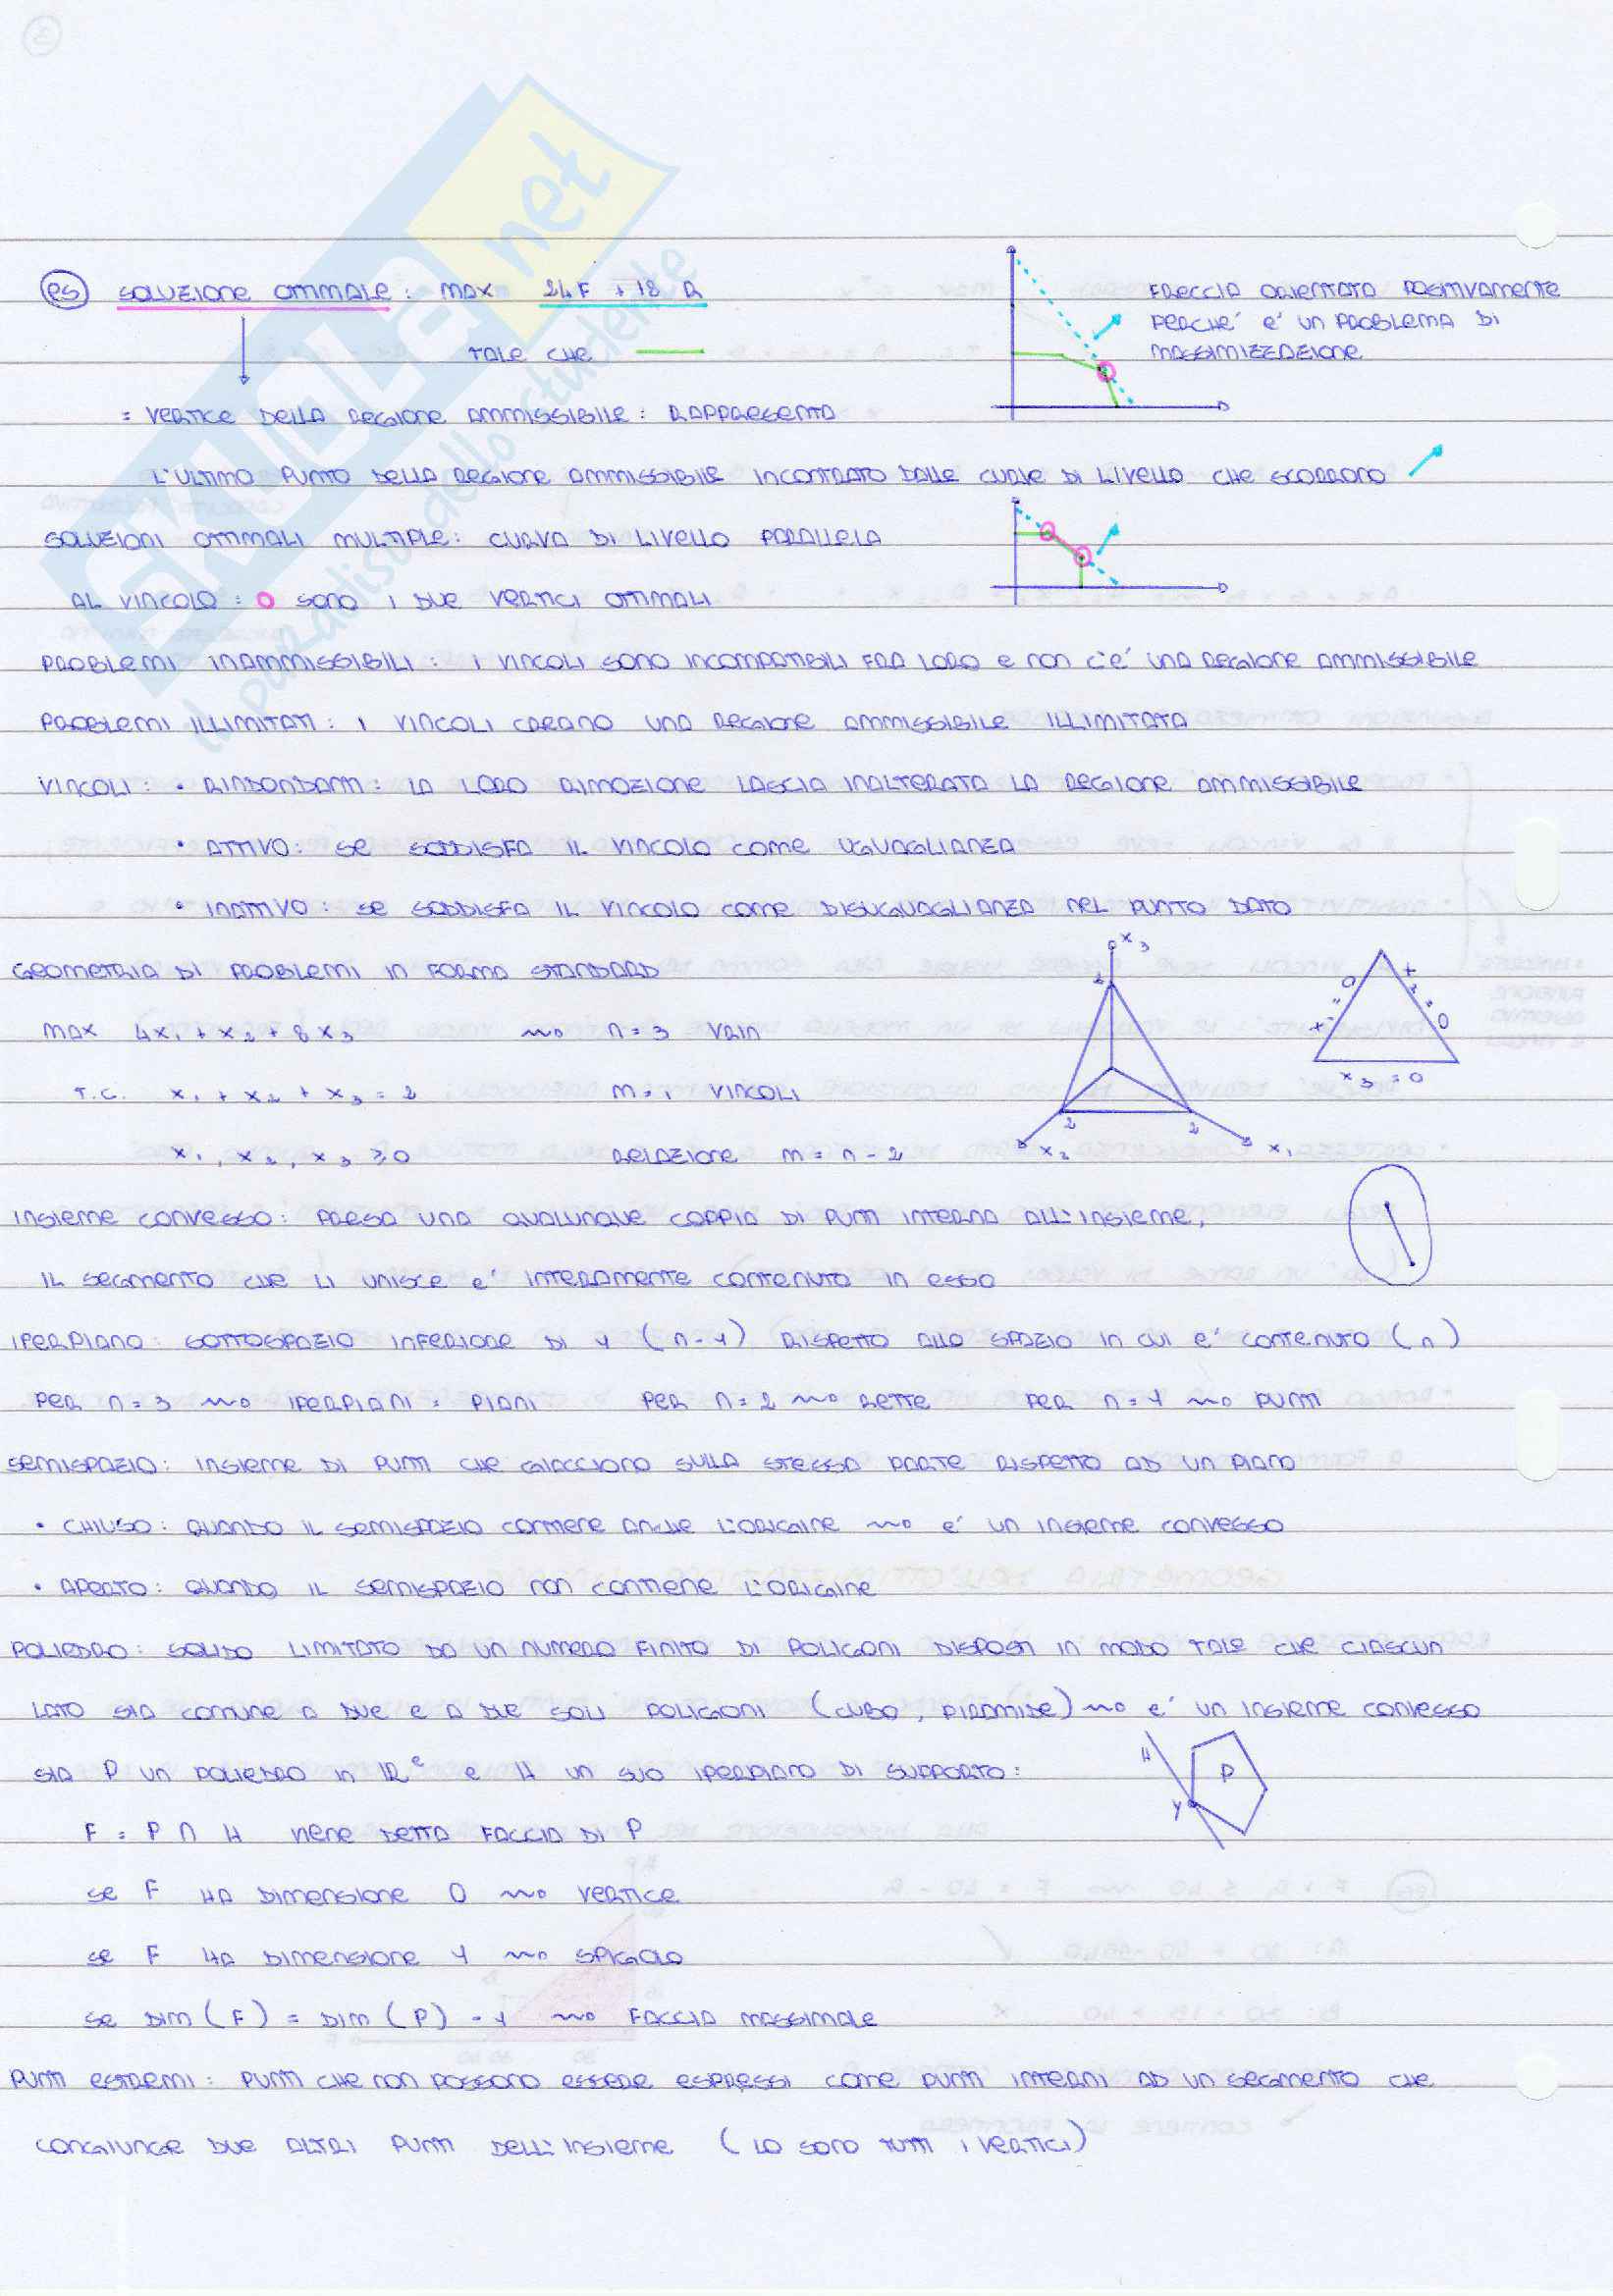 3
SKUOLA.net
il paradiso dello studente
es SOLUZIONE OTTIMALE: MAX 24F + 18R
FRECCIA ORIENTATA POSITIVAMENTE
PERCHE' E' UN PROBLEMA DI
MASSIMIZZAZIONE
TALE CHE
= VERTICE DELLA REGIONE AMMISSIBILE: RAPPRESENTA
L'ULTIMO PUNTO DELLA REGIONE AMMISSIBILE INCONTRATO DALLE CURVE DI LIVELLO CHE SCORRONO
SOLUZIONI OTTIMALI MULTIPLE: CURVA DI LIVELLO PARALLELA
AL VINCOLO: O SONO I DUE VERTICI OTTIMALI
PROBLEMI INAMMISSIBILI: I VINCOLI SONO INCOMPATIBILI FRA LORO E NON C'E' UNA REGIONE AMMISSIBILE
PROBLEMI ILLIMITATI: I VINCOLI CREANO UNA REGIONE AMMISSIBILE ILLIMITATA
VINCOLI: • RINDONDANTI: LA LORO RIMOZIONE LASCIA INALTERATA LA REGIONE AMMISSIBILE
• ATTIVO: SE SODDISFA IL VINCOLO COME UGUAGLIANZA
• INATTIVO: SE SODDISFA IL VINCOLO COME DISUGUAGLIANZA NEL PUNTO DATO
GEOMETRIA DI PROBLEMI IN FORMA STANDARD
MAX 4x₁ + x₂ + 8x₃ ~> n = 3 VAR
T.C. x₁ + x₂ + x₃ = 2 m = 1 VINCOLI
x₁, x₂, x₃ ≥ 0 RELAZIONE m = n - 2
x₃
2
2
2
x₂
x₁
x₁ = 0
x₂ = 0
x₃ = 0
INSIEME CONVESSO: PRESA UNA QUALUNQUE COPPIA DI PUNTI INTERNA ALL'INSIEME,
IL SEGMENTO CHE LI UNISCE E' INTERAMENTE CONTENUTO IN ESSO
IPERPIANO: SOTTOSPAZIO INFERIORE DI 1 (n-1) RISPETTO ALLO SPAZIO IN CUI E' CONTENUTO (n)
PER n = 3 ~> IPERPIANI = PIANI PER n = 2 ~> RETTE PER n = 1 ~> PUNTI
SEMISPAZIO: INSIEME DI PUNTI CHE GIACCIONO SULLA STESSA PARTE RISPETTO AD UN PIANO
• CHIUSO: QUANDO IL SEMISPAZIO CONTIENE ANCHE L'ORIGINE ~> E' UN INSIEME CONVESSO
• APERTO: QUANDO IL SEMISPAZIO NON CONTIENE L'ORIGINE
POLIEDRO: SOLIDO LIMITATO DA UN NUMERO FINITO DI POLIGONI DISPOSTI IN MODO TALE CHE CIASCUN
LATO SIA COMUNE A DUE E A DUE SOLI POLIGIONI (CUBO, PIRAMIDE) ~> E' UN INSIEME CONVESSO
SIA P UN POLIEDRO IN R² E H UN SUO IPERPIANO DI SUPPORTO:
H
P
Y
F = P ∩ H VIENE DETTA FACCIA DI P
SE F HA DIMENSIONE 0 ~> VERTICE
SE F HA DIMENSIONE 1 ~> SPIGOLO
SE DIM(F) = DIM(P) - 1 ~> FACCIA MASSIMALE
PUNTI ESTREMI: PUNTI CHE NON POSSONO ESSERE ESPRESSI COME PUNTI INTERNI AD UN SEGMENTO CHE
CONGIUNGE DUE ALTRI PUNTI DELL'INSIEME (LO SONO TUTTI I VERTICI)